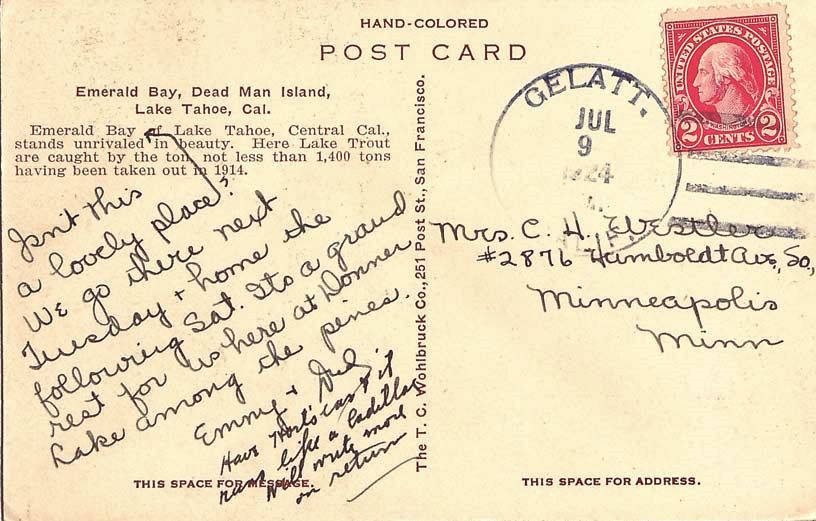 HAND-COLORED
POST CARD
Emerald Bay, Dead Man Island,
Lake Tahoe, Cal.
Emerald Bay of Lake Tahoe, Central Cal.,
stands unrivaled in beauty. Here Lake Trout
are caught by the ton, not less than 1,400 tons
having been taken out in 1914.
Isn't this
a lovely place?
We go there next
Tuesday + home the
following Sat. Its a grand
rest for us here at Donner
Lake among the pines.
Emmy +
Have car it
runs like a Cadillac
Will write more
on return
THIS SPACE FOR MESSAGE.
The T. C. Wohlbruck Co., 251 Post St., San Francisco.
GELATT.
JUL
9
1924
UNITED STATES POSTAGE
WASHINGTON
2 CENTS 2
Mrs. C. H. Westler
#2876 Humboldt Ave, So.,
Minneapolis
Minn
THIS SPACE FOR ADDRESS.